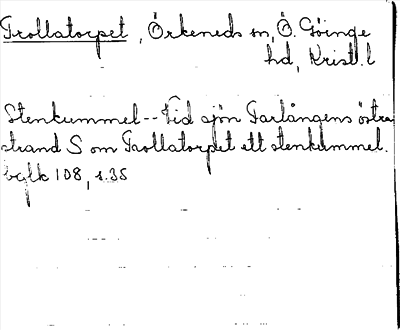 Trollatorpet, Örkeneds sn, Ö. Göinge
hd, Krist. l
Stenkummel-- Vid sjön Tarlångens östra
strand S om Trollatorpet ett stenkummel.
bglk 108, s.35